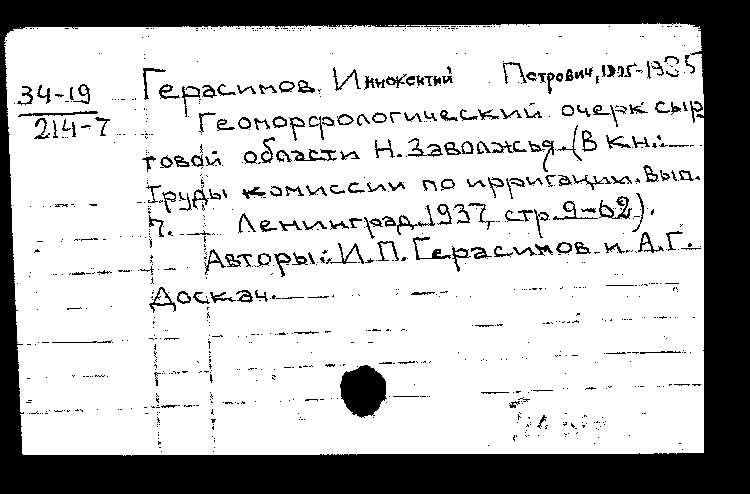 34-19
214-7
Герасимов, Иннокентий Петрович,
Геоморфологический очерк сыр
товой области Н. Заволжья. (В кн.:
Труды комиссии по ирригации. Вып.
7. Ленинград. 1937, стр. 9-62).
Авторы: И. П. Герасимов и А. Г.
Доскач.